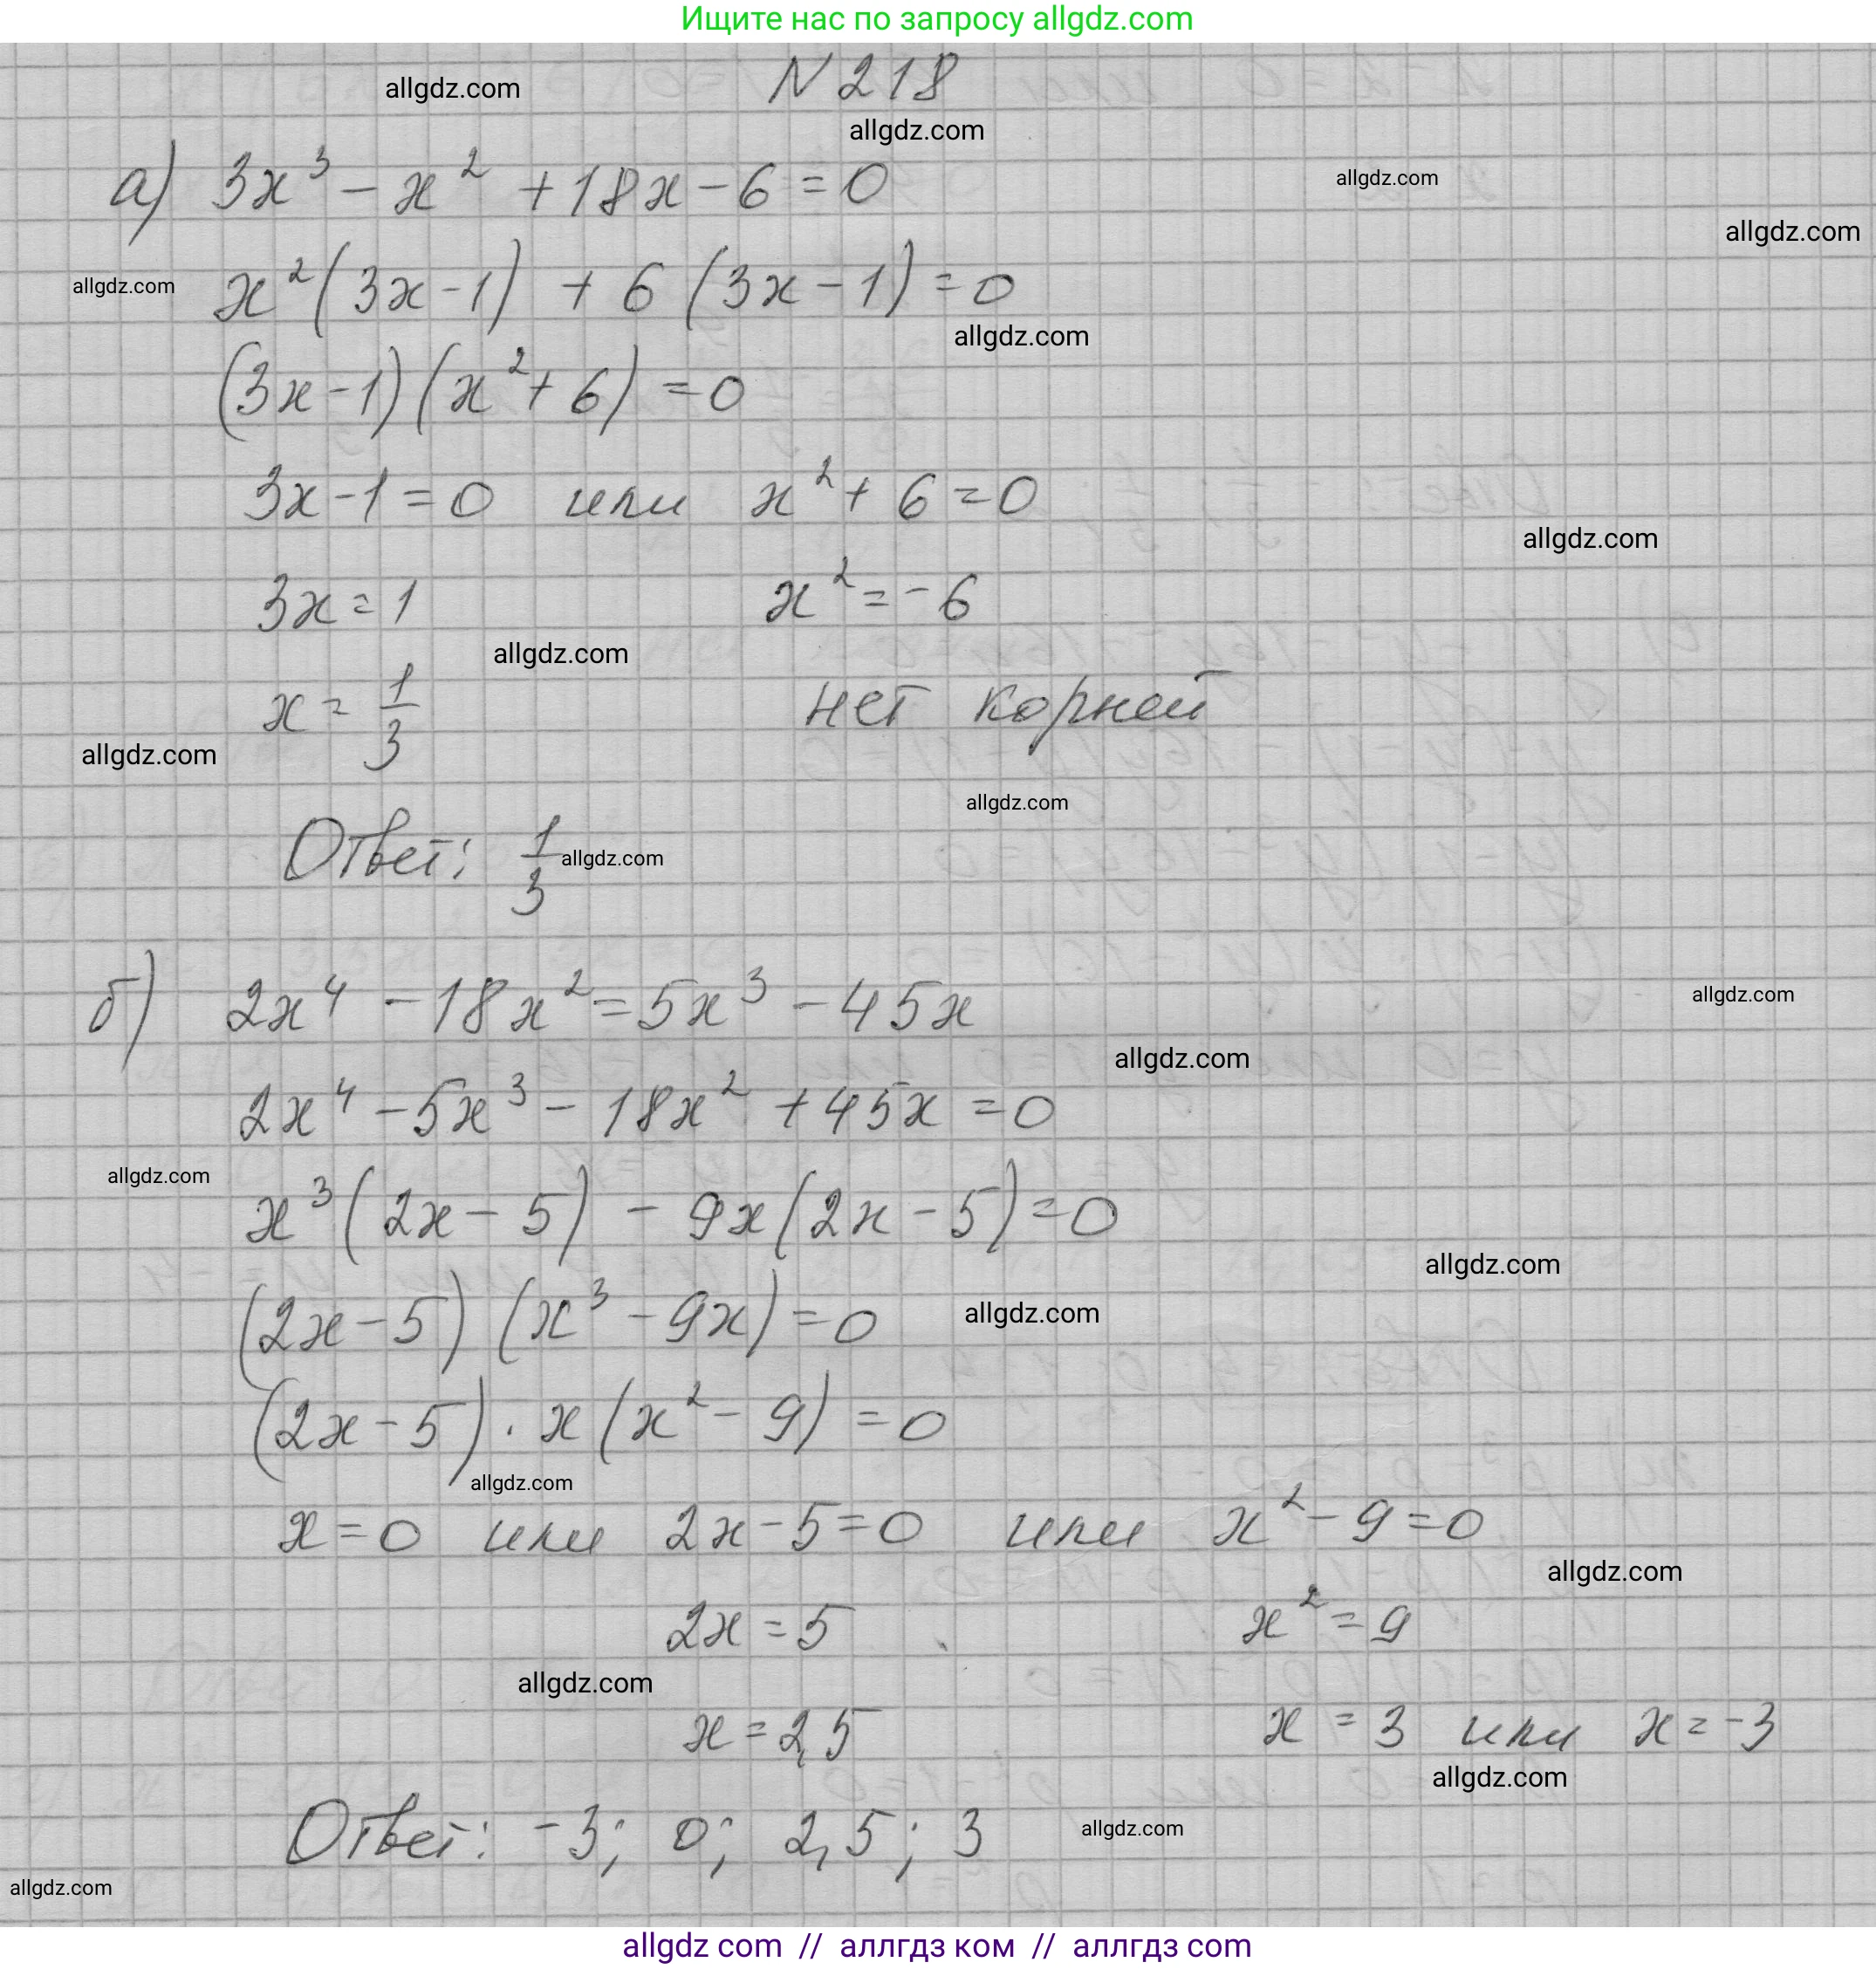 Ищите нас по запросу allgdz.com
N 218
allgdz.com
allgdz.com
а) 3x³ - x² + 18x - 6 = 0
allgdz.com
allgdz.com
allgdz.com
x²(3x - 1) + 6(3x - 1) = 0
allgdz.com
(3x - 1)(x² + 6) = 0
3x - 1 = 0 или x² + 6 = 0
allgdz.com
3x = 1 x² = -6
allgdz.com
x = 1/3 нет корней
allgdz.com
allgdz.com
Ответ: 1/3
allgdz.com
б) 2x⁴ - 18x² = 5x³ - 45x
allgdz.com
allgdz.com
2x⁴ - 5x³ - 18x² + 45x = 0
allgdz.com
x³(2x - 5) - 9x(2x - 5) = 0
allgdz.com
(2x - 5)(x³ - 9x) = 0
allgdz.com
(2x - 5) · x(x² - 9) = 0
allgdz.com
x = 0 или 2x - 5 = 0 или x² - 9 = 0
allgdz.com
2x = 5 x² = 9
allgdz.com
x = 2,5 x = 3 или x = -3
allgdz.com
Ответ: -3; 0; 2,5; 3
allgdz.com
allgdz.com
allgdz com // аллгдз ком // аллгдз com